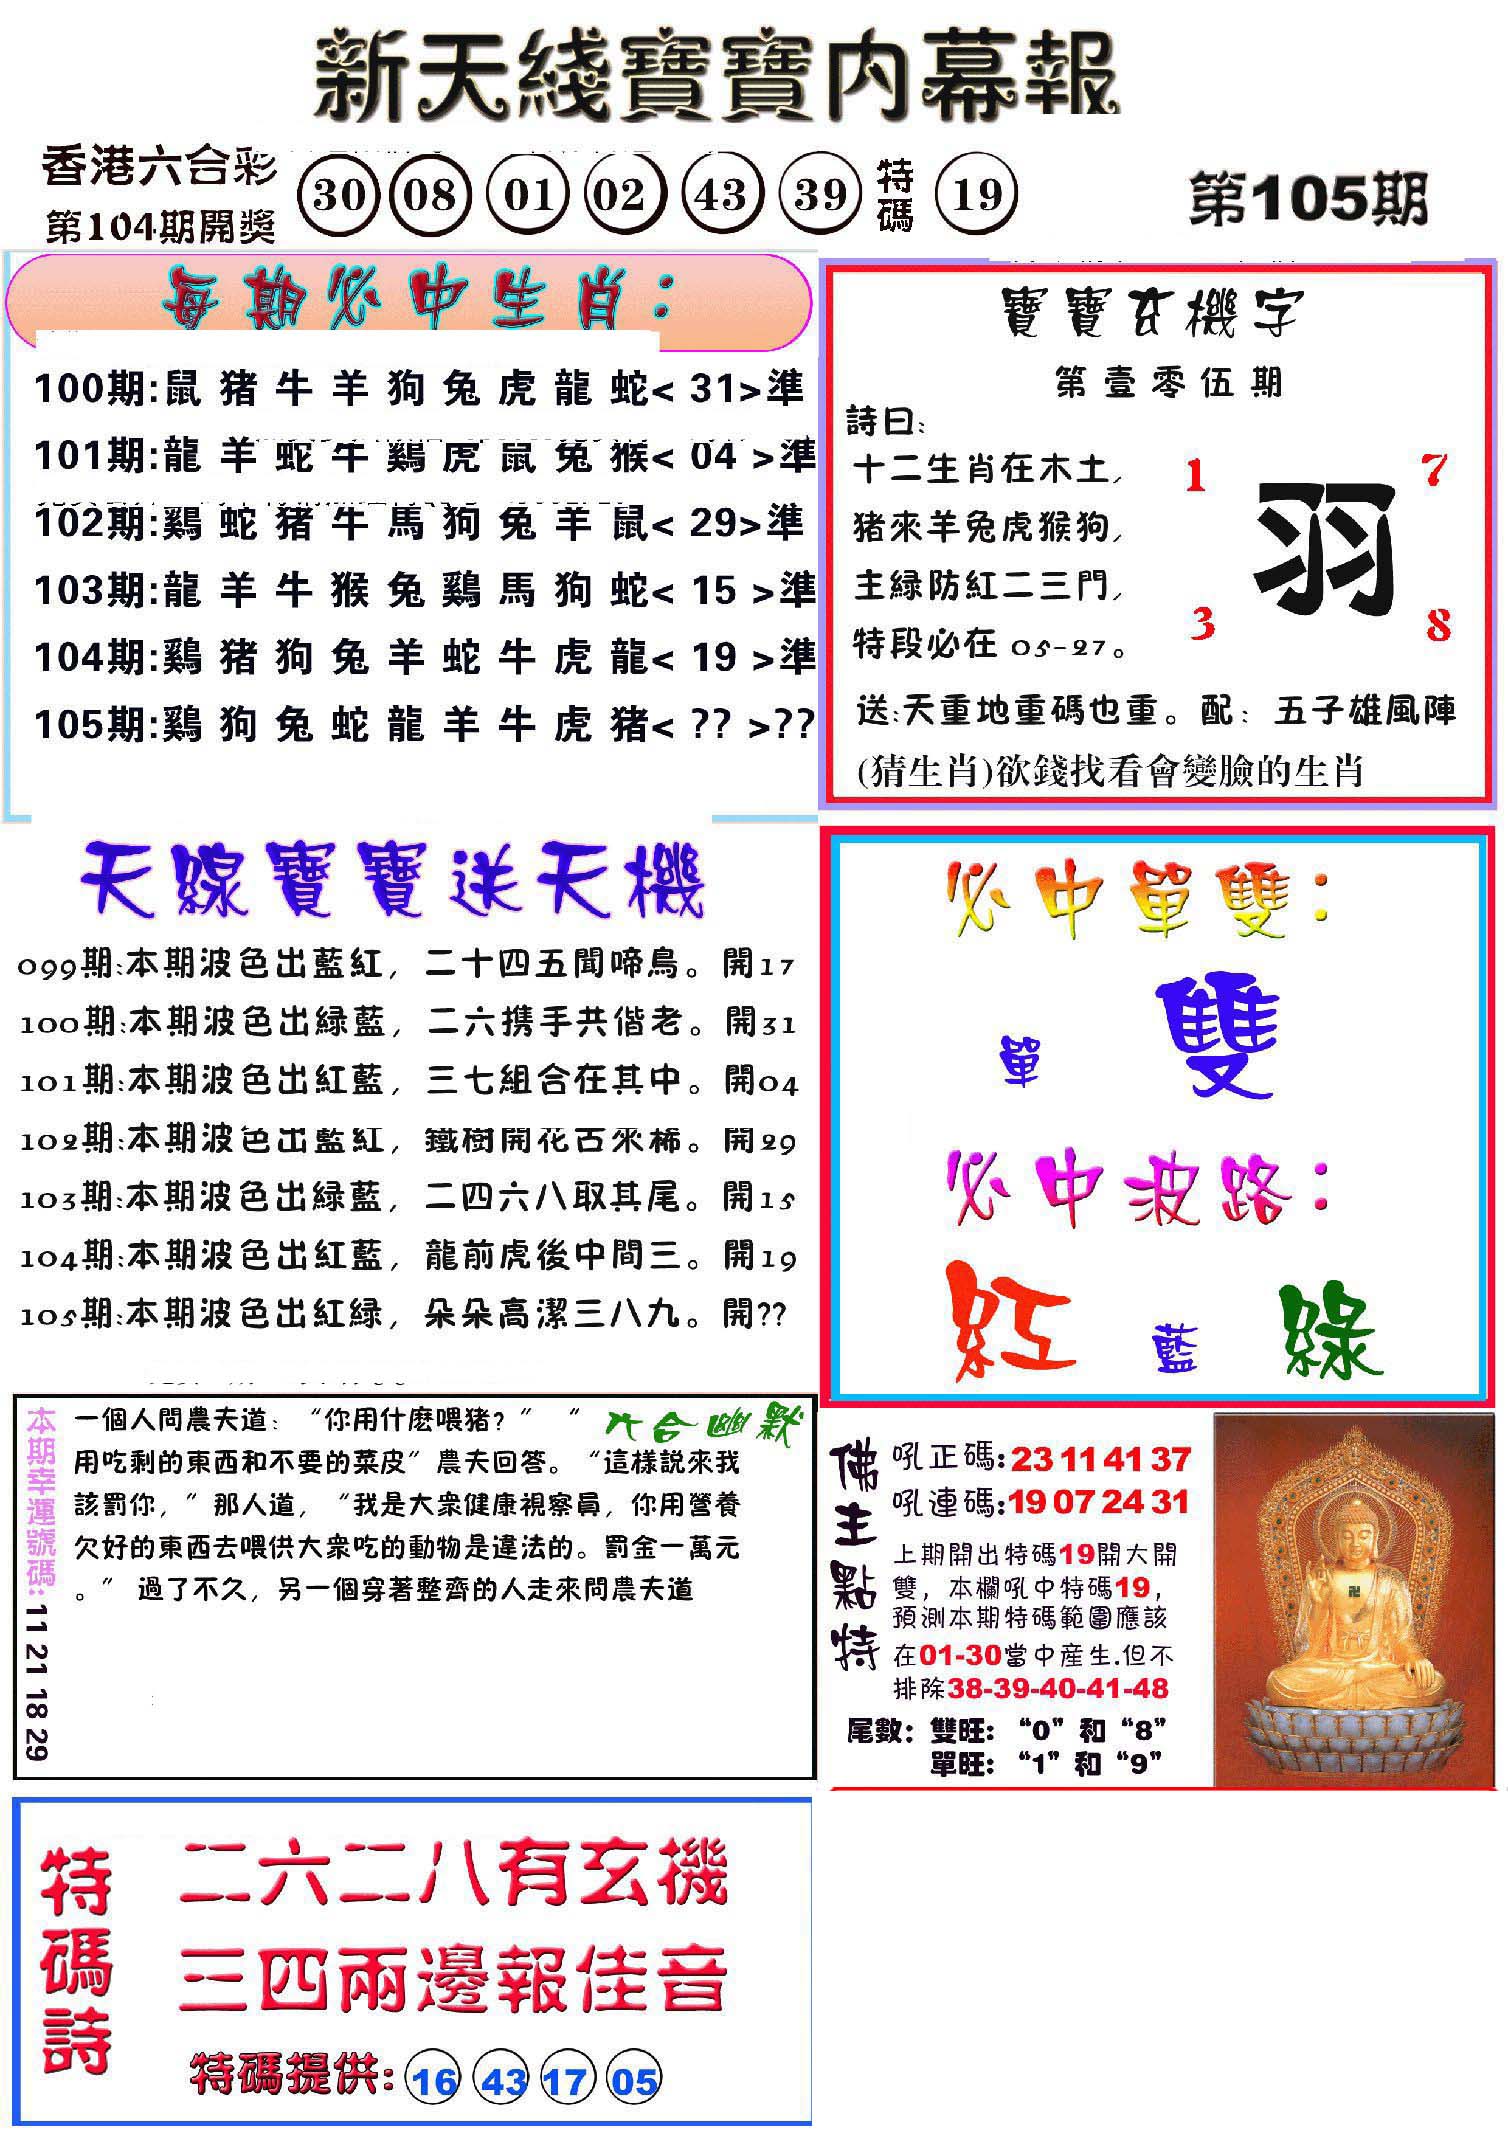 新天綫寶寶内幕報
香港六合彩
第104期開獎
30 08 01 02 43 39 特碼 19
第105期
每期必中生肖：
100期:鼠猪牛羊狗兔虎龍蛇< 31>準
101期:龍羊蛇牛鷄虎鼠兔猴< 04 >準
102期:鷄蛇猪牛馬狗兔羊鼠< 29>準
103期:龍羊牛猴兔鷄馬狗蛇< 15 >準
104期:鷄猪狗兔羊蛇牛虎龍< 19 >準
105期:鷄狗兔蛇龍羊牛虎猪< ?? >??
寶寶玄機字
第壹零伍期
詩曰:
十二生肖在木土,
猪來羊兔虎猴狗,
主緑防紅二三門,
特段必在 05-27。
1 7
羽
3 8
送:天重地重碼也重。配：五子雄風陣
(猜生肖)欲錢找看會變臉的生肖
天線寶寶送天機
099期:本期波色出藍紅，二十四五聞啼鳥。開17
100期:本期波色出緑藍，二六携手共偕老。開31
101期:本期波色出紅藍，三七組合在其中。開04
102期:本期波色出藍紅，鐵樹開花古來稀。開29
103期:本期波色出緑藍，二四六八取其尾。開15
104期:本期波色出紅藍，龍前虎後中間三。開19
105期:本期波色出紅緑，朵朵高潔三八九。開??
必中單雙：
單 雙
必中波路：
紅 藍 綠
本期幸運號碼:11 21 18 29
六合幽默
一個人問農夫道：“你用什麽喂猪？” “
用吃剩的東西和不要的菜皮”農夫回答。“這樣説來我
該罰你，”那人道，“我是大衆健康視察員，你用營養
欠好的東西去喂供大衆吃的動物是違法的。罰金一萬元
。” 過了不久，另一個穿著整齊的人走來問農夫道
佛主點特
吼正碼:23 11 41 37
吼連碼:19 07 24 31
上期開出特碼19開大開
雙，本欄吼中特碼19，
預測本期特碼範圍應該
在01-30當中産生.但不
排除38-39-40-41-48
尾數：雙旺：“0”和“8”
單旺：“1”和“9”
特碼詩
二六二八有玄機
三四兩邊報佳音
特碼提供: 16 43 17 05